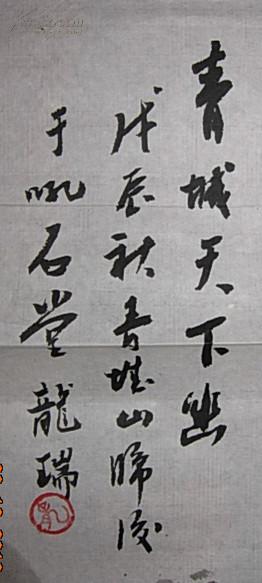 青城天下幽
戊辰秋青城山归后
于吼石堂龍瑞